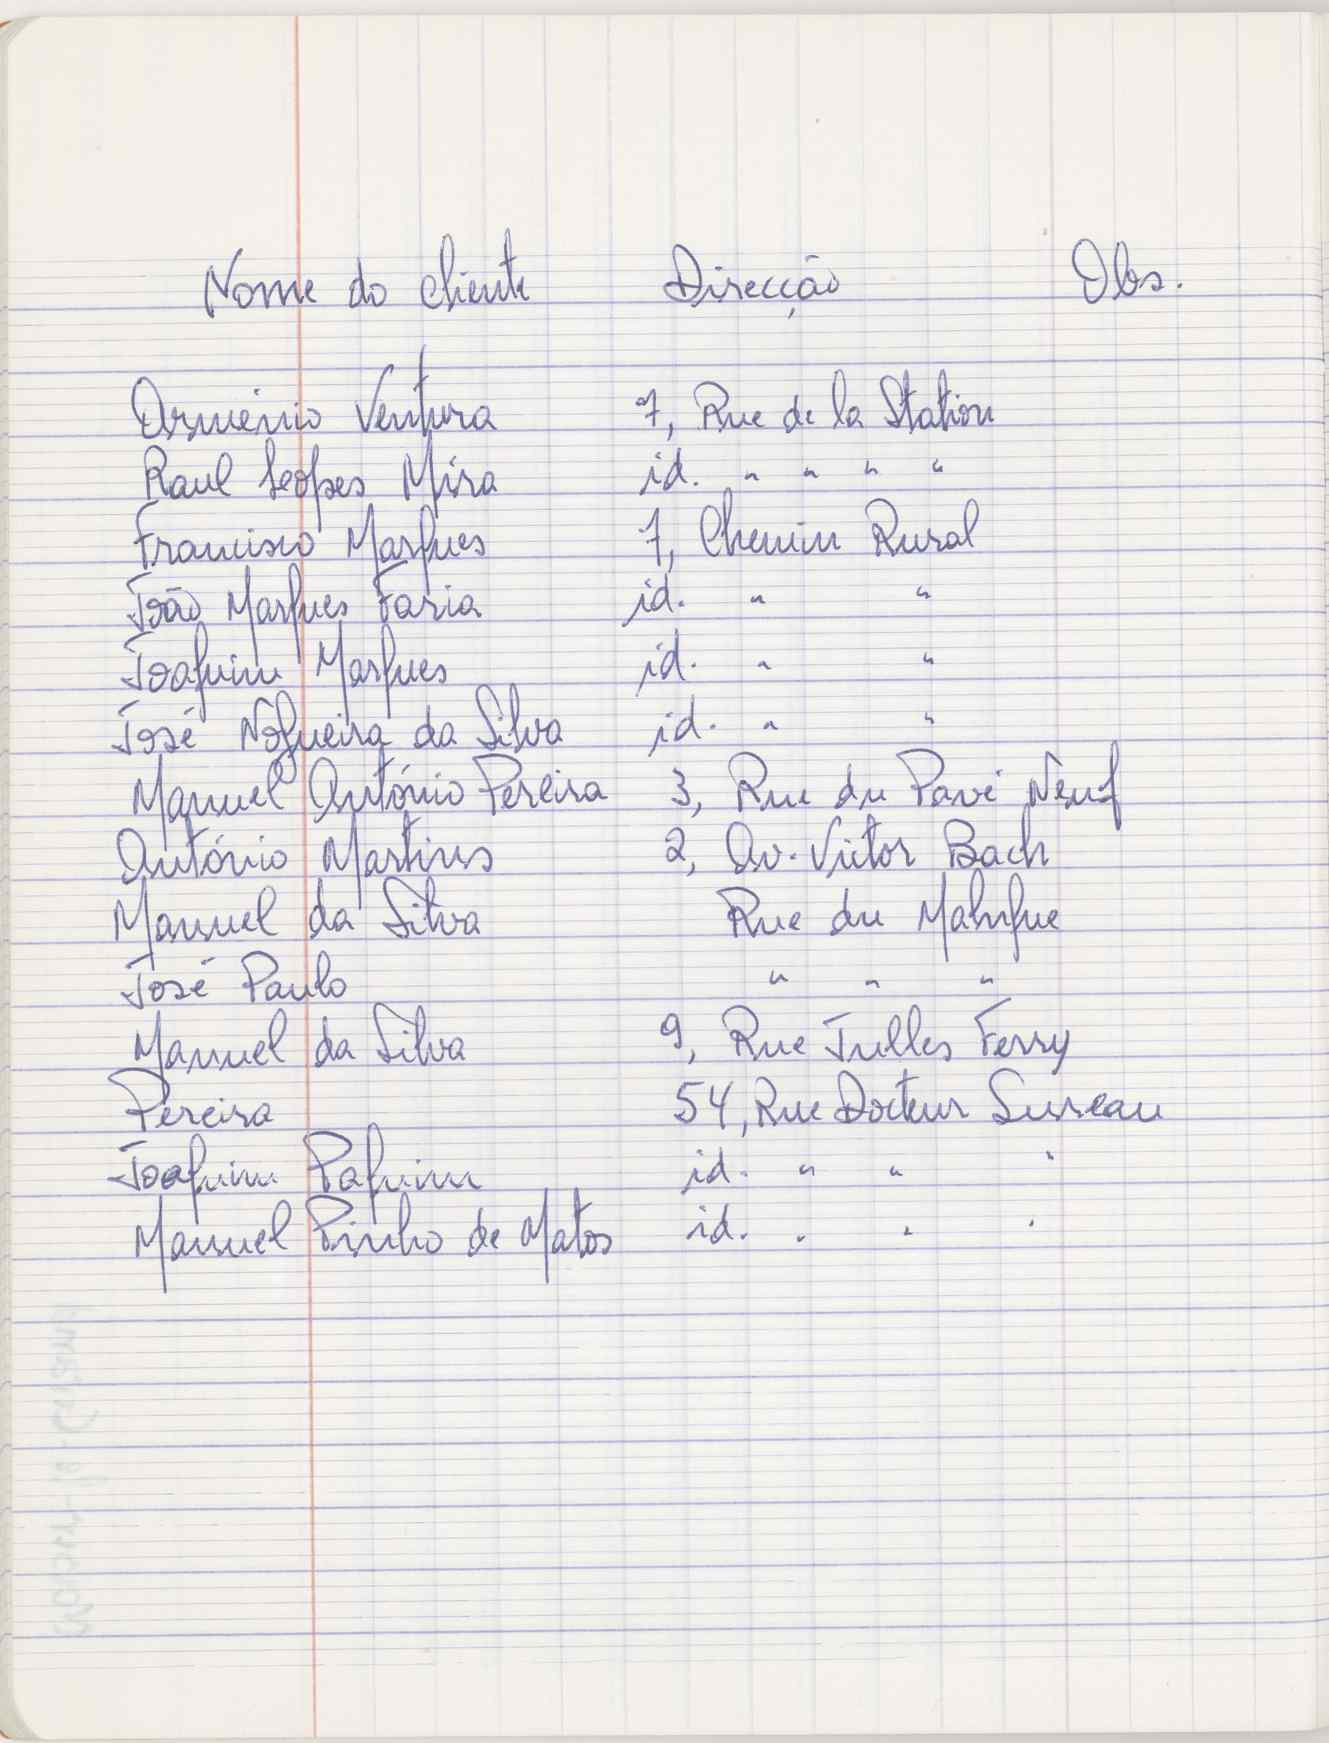 Nome do cliente Direcção Obs.
Arménio Ventura 7, Rue de la Station
Raul Leopes Mira id. " " " "
Francisco Marques 7, Chemin Rural
João Marques Faria id. " "
Joaquim Marques id. " "
José Nogueira da Silva id. " "
Manuel António Pereira 3, Rue du Pavé Neuf
António Martins 2, Av. Victor Bach
Manuel da Silva Rue du
José Paulo " " "
Manuel da Silva 9, Rue Julles Ferry
Pereira 54, Rue Docteur Sureau
Joaquim Paquim id. " " "
Manuel Pinho de Matos id. " " "